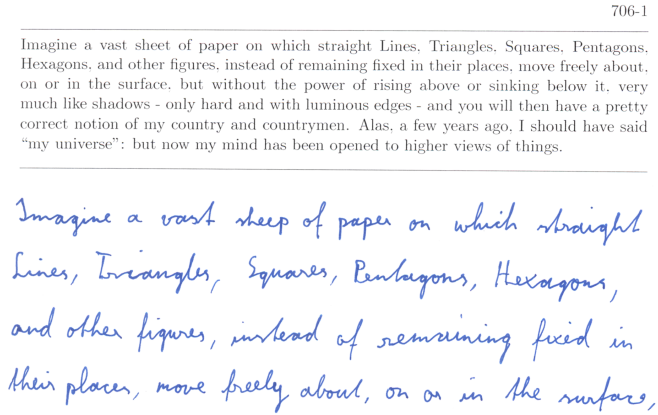 706-1
Imagine a vast sheet of paper on which straight Lines, Triangles, Squares, Pentagons,
Hexagons, and other figures, instead of remaining fixed in their places, move freely about,
on or in the surface, but without the power of rising above or sinking below it, very
much like shadows - only hard and with luminous edges - and you will then have a pretty
correct notion of my country and countrymen. Alas, a few years ago, I should have said
“my universe”: but now my mind has been opened to higher views of things.
Imagine a vast sheep of paper on which straight
Lines, Triangles, Squares, Pentagons, Hexagons,
and other figures, instead of remaining fixed in
their places, move freely about, on or in the surface,